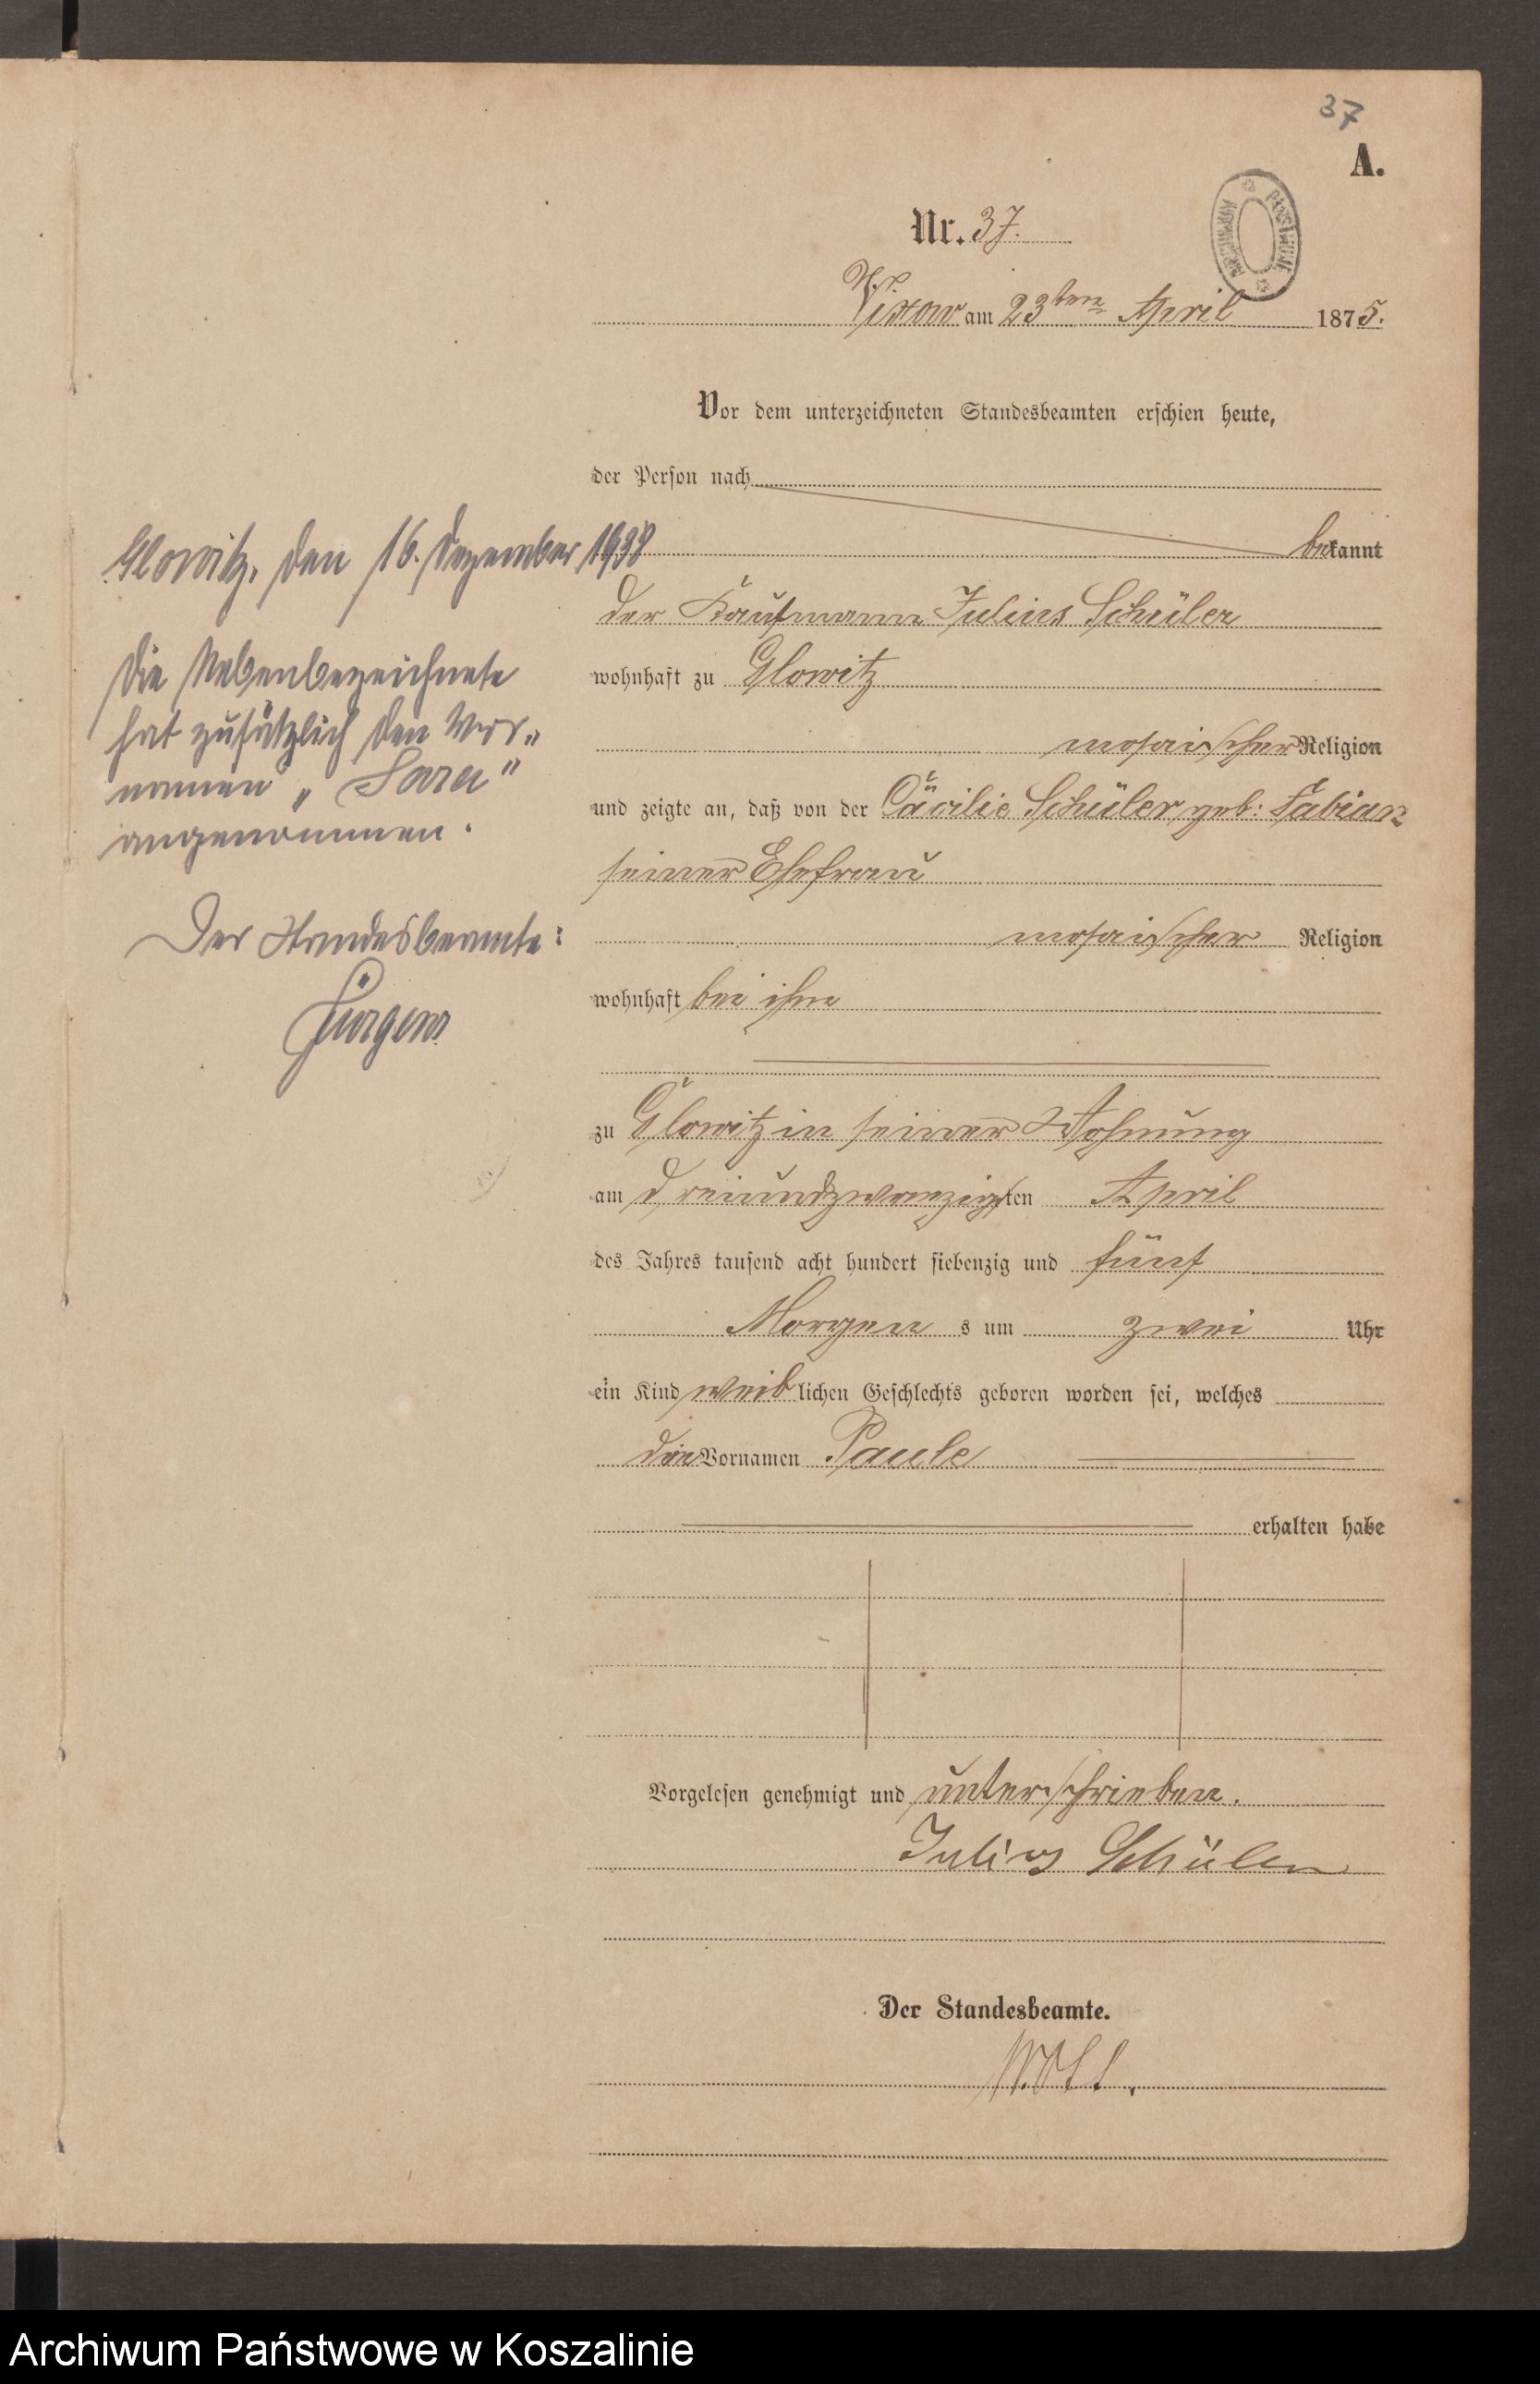 37
A.
Nr. 37.
ARCHIWUM PAŃSTWOWE
Vixow am 23ten April 1875.
Vor dem unterzeichneten Standesbeamten erschien heute,
der Person nach
bekannt
der Kaufmann Julius Schüler
wohnhaft zu Glowitz
mosaischer Religion
und zeigte an, daß von der Cäcilie Schüler geb: Fabian
seiner Ehefrau
mosaischer Religion
wohnhaft bei ihm
zu Glowitz in seiner Wohnung
am dreiundzwanzigsten April
des Jahres tausend acht hundert siebenzig und fünf
Morgens um zwei Uhr
ein Kind weiblichen Geschlechts geboren worden sei, welches
die Vornamen Paule
erhalten habe
Vorgelesen genehmigt und unterschrieben.
Julius Schüler
Der Standesbeamte.
Glowitz, den 16. Dezember 1938
Die Nebenbezeichnete
hat zusätzlich den Vor-
namen „Sara"
angenommen.
Der Standesbeamte:
Jürgens
Archiwum Państwowe w Koszalinie